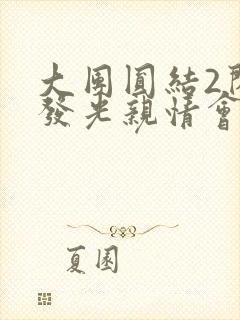 大團圓結2
發光親情會
夏園